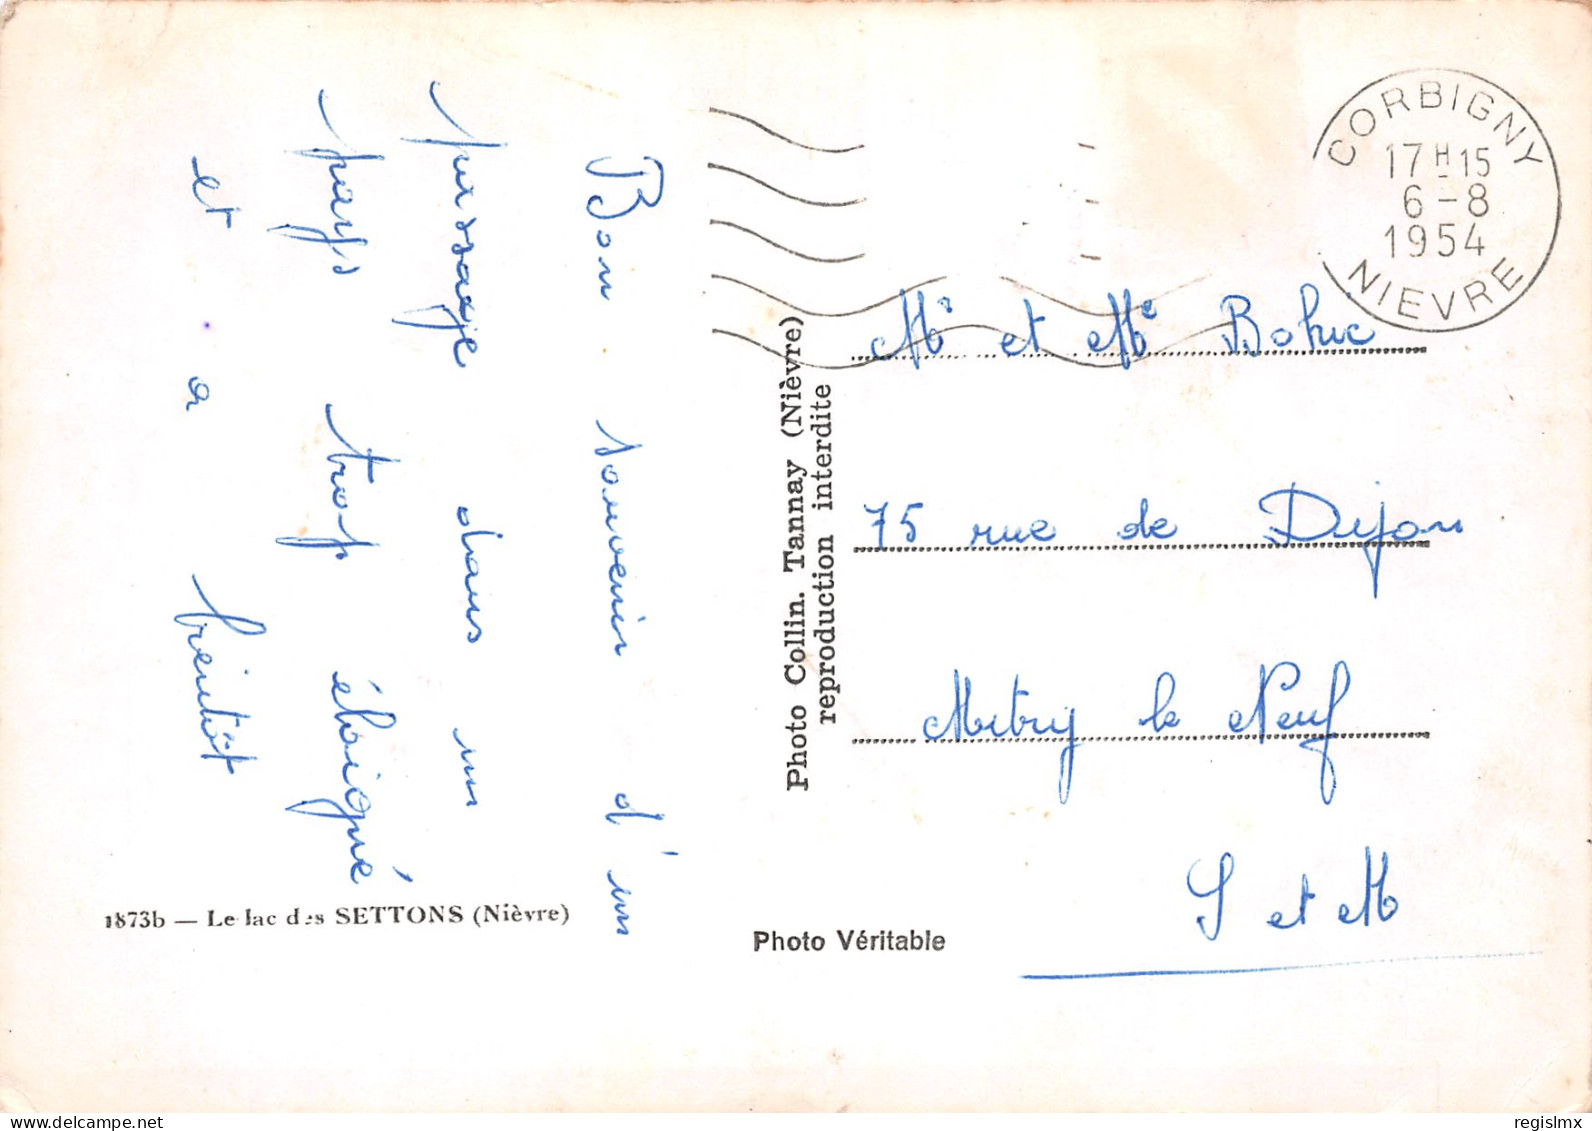 Bon souvenir d'un
passage dans un
pays trop éloigné
et a bientôt
1873b — Le lac des SETTONS (Nièvre)
Photo Collin. Tannay (Nièvre)
reproduction interdite
Photo Véritable
CORBIGNY
17H15
6-8
1954
NIEVRE
Mr et Me
75 rue de Dijon
Mitry le Neuf
S et M
regislmx